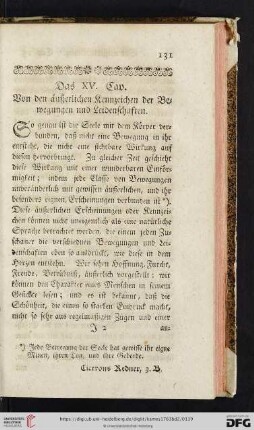 131
Das XV. Cap.
Von den äußerlichen Kennzeichen der Be-
wegungen und Leidenschaften.
So genau ist die Seele mit dem Körper ver-
bunden, daß nicht eine Bewegung in ihr
entstehe, die nicht eine sichtbare Wirkung auf
diesen hervorbringt. Zu gleicher Zeit geschieht
diese Wirkung mit einer wunderbaren Einför-
migkeit; indem jede Classe von Bewegungen
unveränderlich mit gewissen äußerlichen, und ihr
besonders eignen Erscheinungen verbunden ist *).
Diese äußerlichen Erscheinungen oder Kennzei-
chen können nicht uneigentlich als eine natürliche
Sprache betrachtet werden, die einem jeden Zu-
schauer die verschiednen Bewegungen und Lei-
denschaften eben so ausdrückt, wie diese in dem
Herzen entstehn. Wir sehen Hoffnung, Furcht,
Freude, Betrübniß, äußerlich vorgestellt: wir
können den Charakter eines Menschen in seinem
Gesichte lesen; und es ist bekannt, daß die
Schönheit, die einen so starken Eindruck macht,
nicht so sehr aus regelmäßigen Zügen und einer
J 2 an-
*) Jede Bewegung der Seele hat gewisse ihr eigne
Minen, ihren Ton, und ihre Geberde.
Cicerons Redner, 3. B.
http://digi.ub.uni-heidelberg.de/diglit/kames1763bd2/0139
UNIVERSITÄTS-
BIBLIOTHEK
HEIDELBERG
Gefördert durch die
DFG